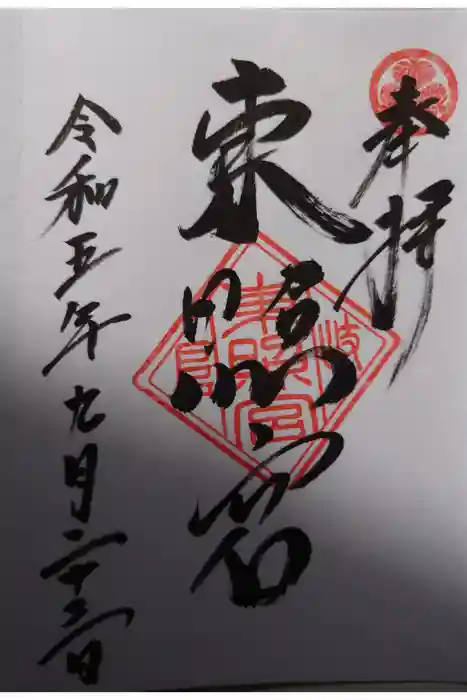 奉拝
東照宮
東照宮
令和五年九月二十二日